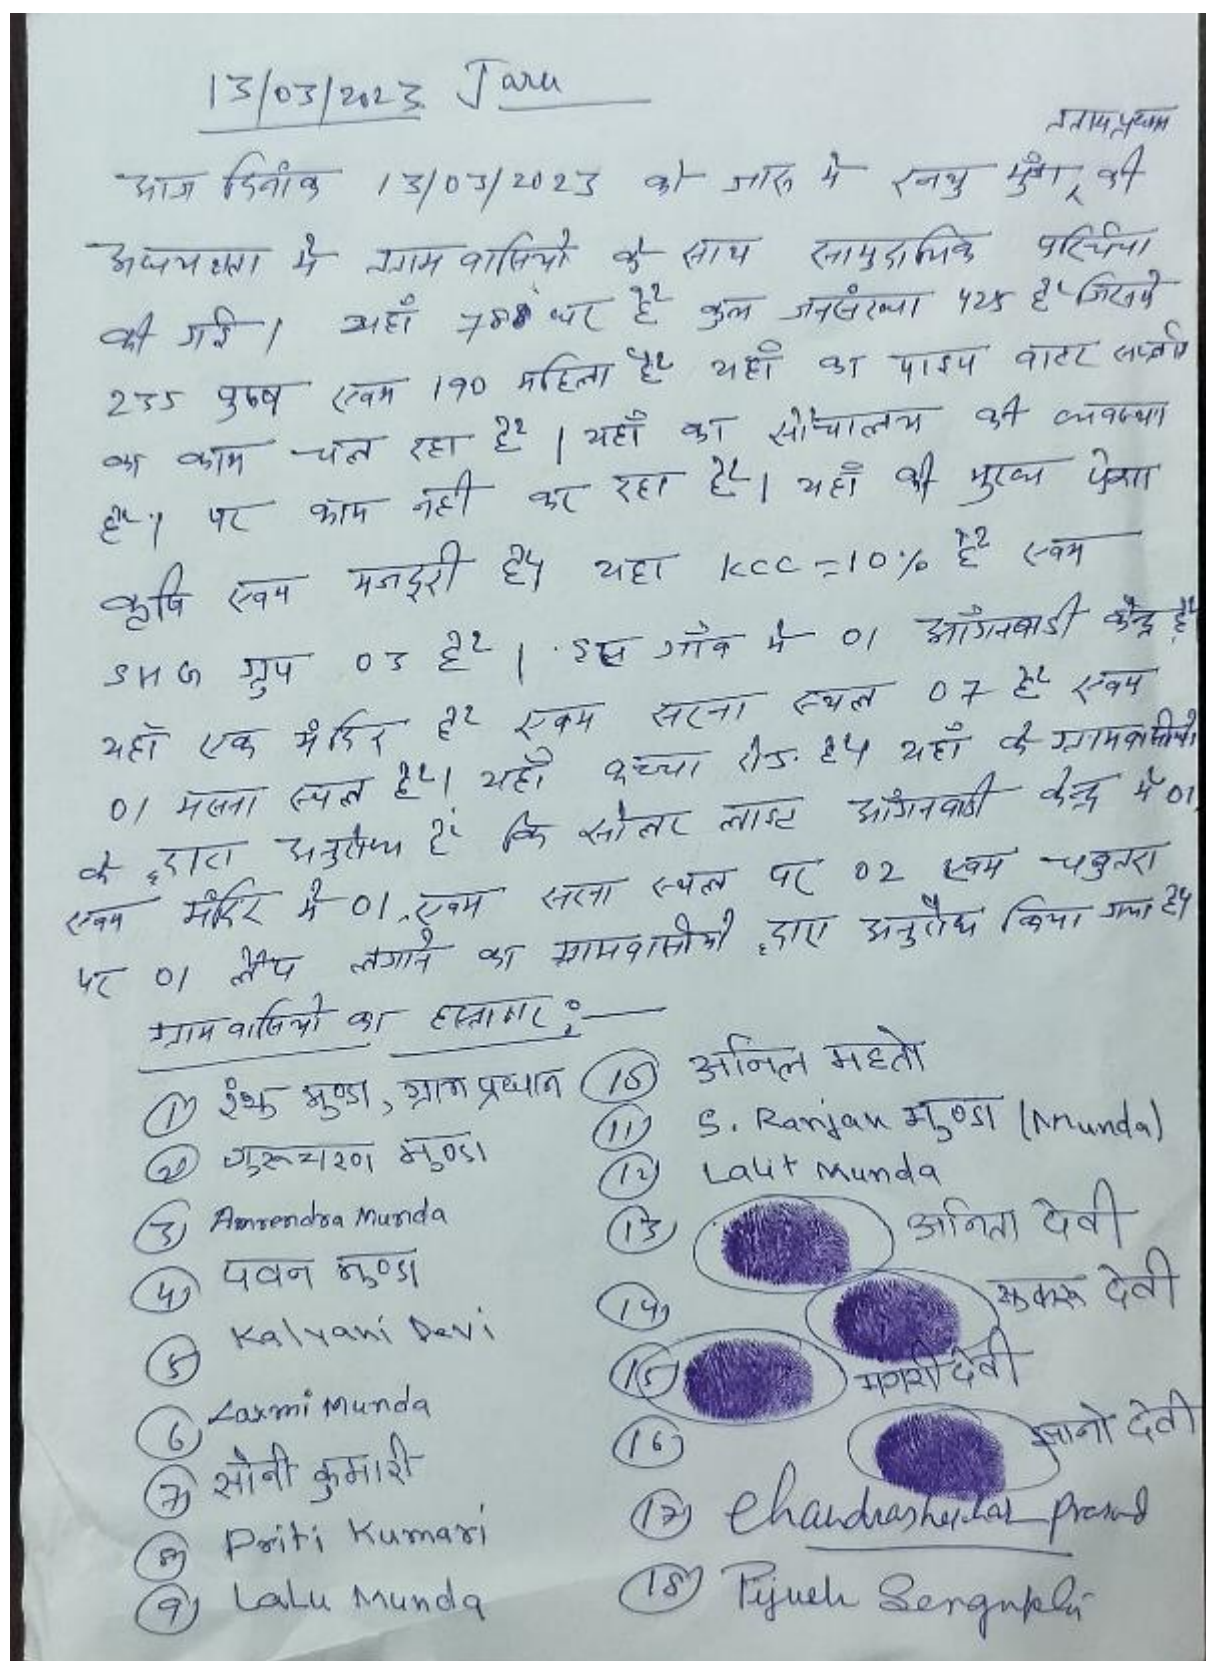 13/03/2023 Jaru
ग्रामप्रधान
आज दिनांक 13/03/2023 को जारू में रनथु मुंडा, की
अध्यक्षता में ग्रामवासियों के साथ सामुदायिक परिचर्चा
की गई। यहाँ घर है कुल जनसंख्या 425 है जिसमें
235 पुरुष एवम 190 महिला है यहाँ का पाइप वाटर सप्लाई
का काम चल रहा है। यहाँ का सौचालय की व्यवस्था
है। पर काम नही कर रहा है। यहाँ की मुख्य पेशा
कृषि एवम मजदुरी है। यहा KCC = 10% है एवम
SHG ग्रुप 03 है। इस गाँव मे 01 आँगनबाडी केन्द्र है
यहाँ एक मंदिर है एवम सरना स्थल 07 है एवम
01 मसना स्थल है। यहाँ कच्चा रोड है। यहाँ के ग्रामवासीयो
के द्वारा अनुरोध है कि सोलर लाइट आँगनवाडी केन्द्र में 01
एवम मंदिर में 01, एवम सरना स्थल पर 02 एवम चबुतरा
पर 01 लैंप लगाने का ग्रामवासीयों द्वारा अनुरोध किया गया है।
ग्रामवासियों का हस्ताक्षर :—
① रंथु मुण्डा, ग्राम प्रधान
② गुरुचरण मुण्डा
③ Amrendra Munda
④ पवन मुण्डा
⑤ Kalyani Devi
⑥ Laxmi Munda
⑦ सोनी कुमारी
⑧ Priti Kumari
⑨ Lalu Munda
⑩ अनिल महतो
⑪ S. Ranjan मुण्डा (Munda)
⑫ Lalit Munda
⑬ अनिता देवी
⑭ देवी
⑮ मंगरी देवी
⑯ देवी
⑰ Chandrashekhar Prasad
⑱ Pijush Sengupta